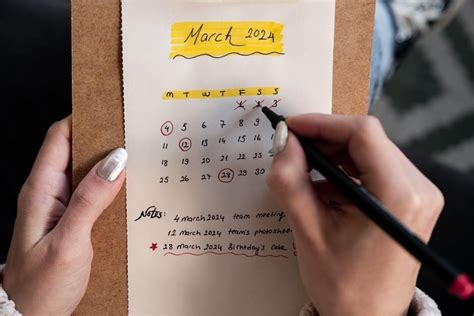 March 2024
M T W T F S S
1 2 3
4 5 6 7 8 9
11 12 13 14 15 16
18 19 20 21 22 23
25 26 27 28 29 30
Notes: 4 March 2024 team meeting
12 March 2024 team's
28 March 2024 Birthday's cake